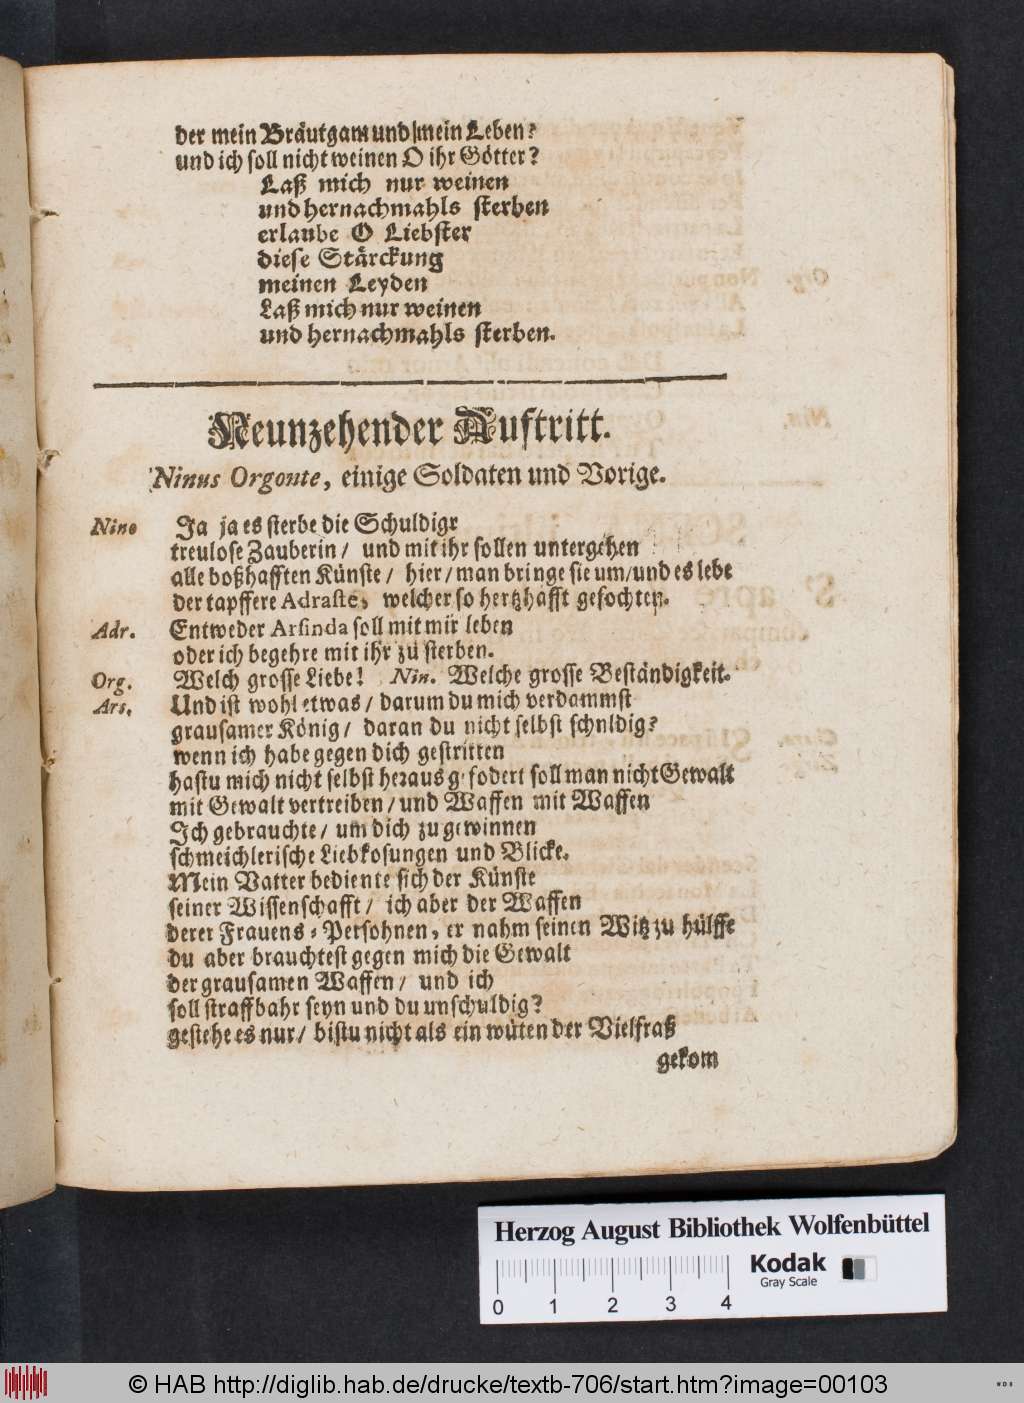 der mein Bräutgam und mein Leben?
und ich soll nicht weinen O ihr Götter?
Laß mich nur weinen
und hernachmahls sterben
erlaube O Liebster
diese Stärckung
meinen Leyden
Laß mich nur weinen
und hernachmahls sterben.
Neunzehender Auftritt.
Ninus Orgonte, einige Soldaten und Vorige.
Nino Ja ja es sterbe die Schuldige
treulose Zauberin / und mit ihr sollen untergehen
alle boßhafften Künste / hier / man bringe sie um / und es lebe
der tapffere Adraste, welcher so hertzhafft gefochten.
Adr. Entweder Arsinda soll mit mir leben
oder ich begehre mit ihr zu sterben.
Org. Welch grosse Liebe! Nin. Welche grosse Beständigkeit.
Ars. Und ist wohl etwas / darum du mich verdammst
grausamer König / daran du nicht selbst schuldig?
wenn ich habe gegen dich gestritten
hastu mich nicht selbst heraus gefodert soll man nicht Gewalt
mit Gewalt vertreiben / und Waffen mit Waffen
Ich gebrauchte / um dich zu gewinnen
schmeichlerische Liebkosungen und Blicke.
Mein Vatter bediente sich der Künste
seiner Wissenschafft / ich aber der Waffen
derer Frauens-Persohnen, er nahm seinen Witz zu hülffe
du aber brauchtest gegen mich die Gewalt
der grausamen Waffen / und ich
soll straffbahr seyn und du unschuldig?
gestehe es nur / bistu nicht als ein wüten der Vielfraß
gekom
Herzog August Bibliothek Wolfenbüttel
Kodak
Gray Scale
0 1 2 3 4
© HAB http://diglib.hab.de/drucke/textb-706/start.htm?image=00103